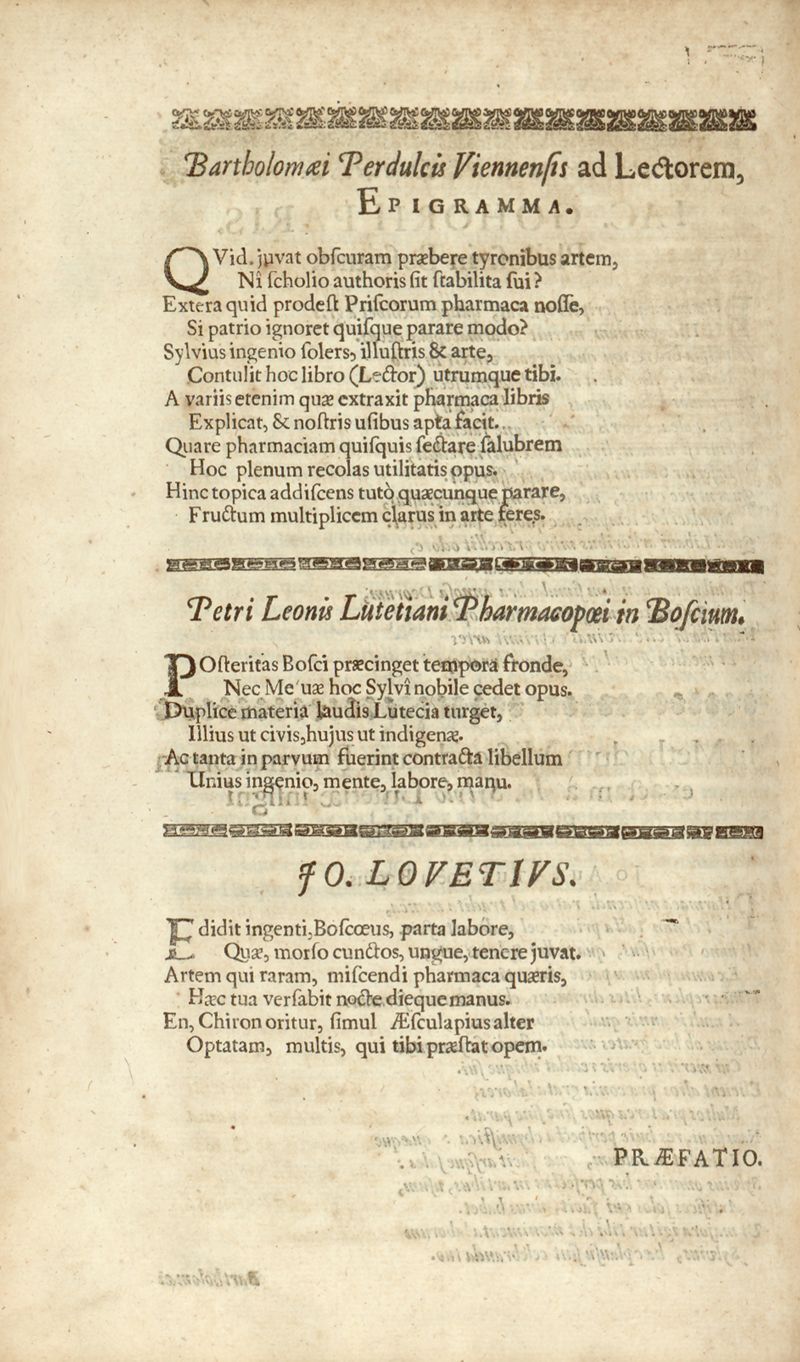 Bartholomæi Perdulcis Viennenſis ad Lectorem,
EPIGRAMMA.
QVid juvat obſcuram præbere tyronibus artem,
Ni ſcholio authoris ſit ſtabilita ſui?
Extera quid prodeſt Priſcorum pharmaca noſſe,
Si patrio ignoret quiſque parare modo?
Sylvius ingenio ſolers, illuſtris & arte,
Contulit hoc libro (Lector) utrumque tibi.
A variis etenim quæ extraxit pharmaca libris
Explicat, & noſtris uſibus apta facit.
Quare pharmaciam quiſquis ſectare ſalubrem
Hoc plenum recolas utilitatis opus.
Hinc topica addiſcens tutò quæcunque parare,
Fructum multiplicem clarus in arte feres.
Petri Leonis Lutetiani Pharmacopœi in Boſcium.
POſteritas Boſci præcinget tempora fronde,
Nec Me uæ hoc Sylvî nobile cedet opus.
Duplice materia laudis Lutecia turget,
Illius ut civis, hujus ut indigenæ.
Ac tanta in parvum fuerint contracta libellum
Unius ingenio, mente, labore, manu.
JO. LOVETIVS.
Edidit ingenti, Boſcœus, parta labore,
Quæ, morſo cunctos, ungue, tenere juvat.
Artem qui raram, miſcendi pharmaca quæris,
Hæc tua verſabit nocte dieque manus.
En, Chiron oritur, ſimul Æſculapius alter
Optatam, multis, qui tibi præſtat opem.
PRÆFATIO.